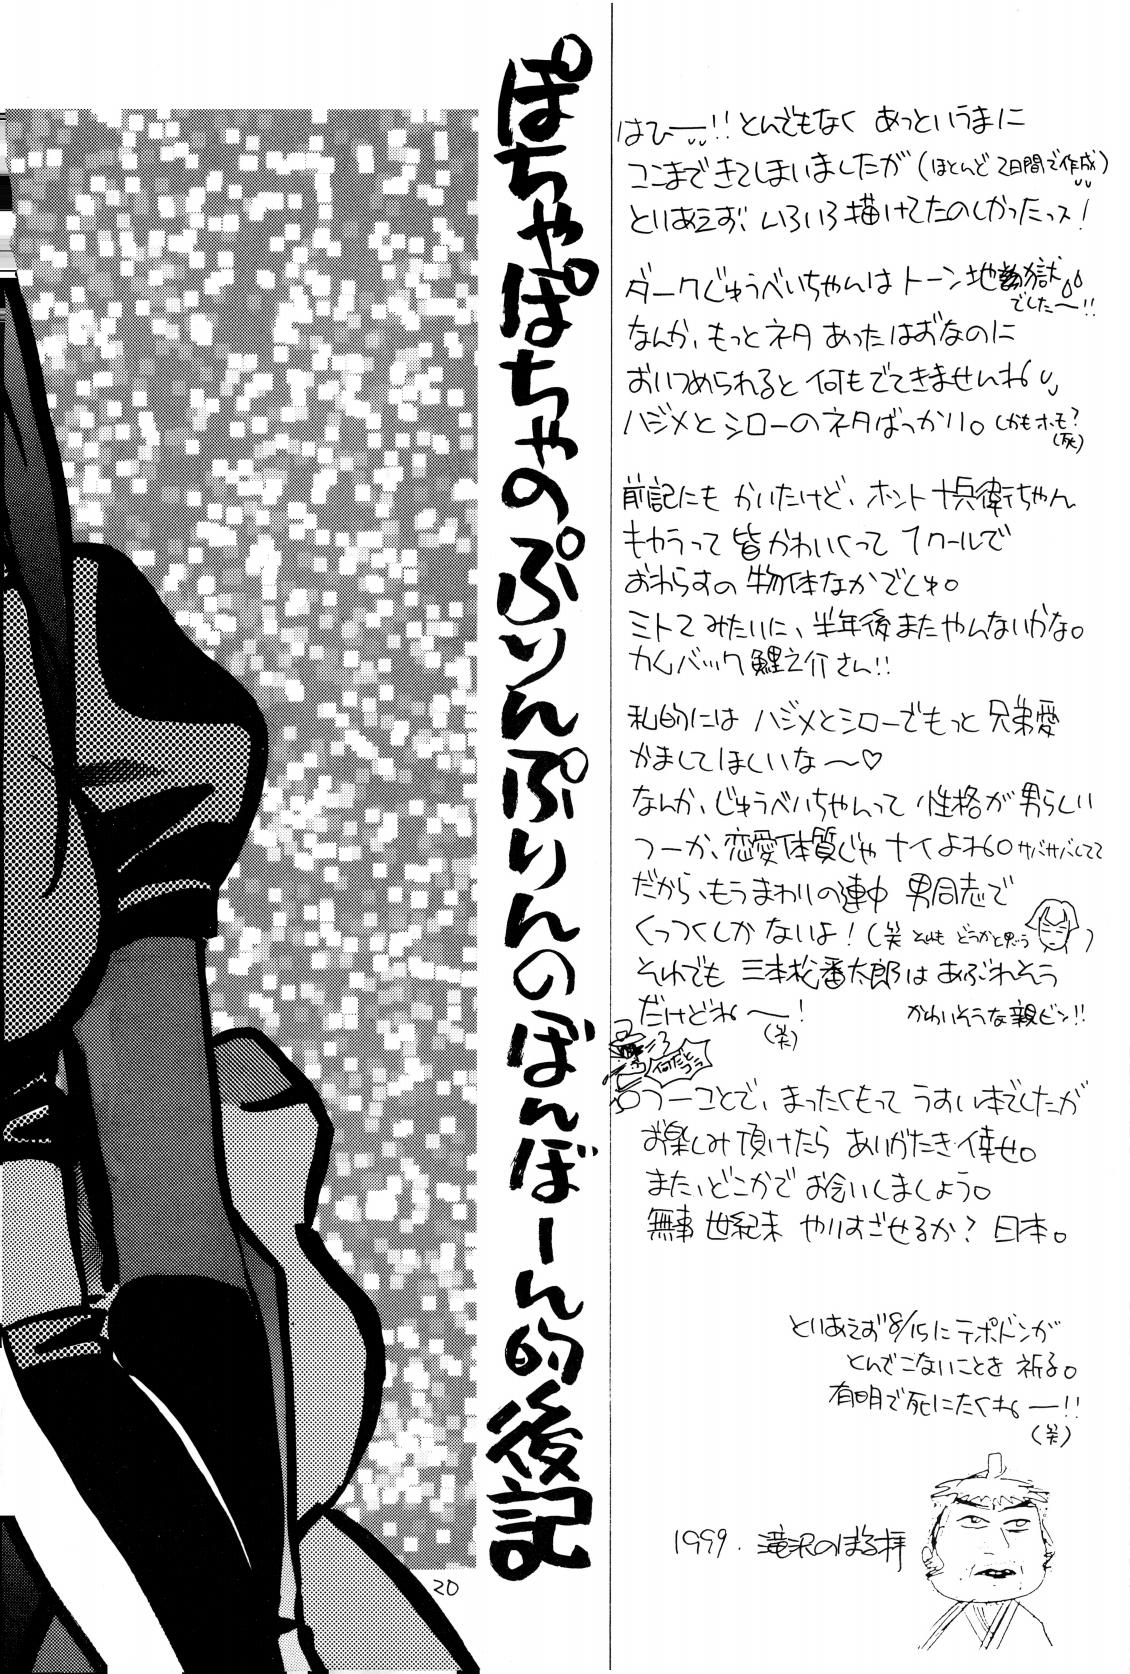 ぽちゃぽちゃのぷりんぷりんのぼんぼーん的後記
はひー!!とんでもなく あっというまに
ここまできてしまいましたが(ほとんど 2日間で作成)
とりあえず、いろいろ描けてたのしかったっス!
ダークじゅうべいちゃんは トーン地獄
でした〜!!
なんか、もっとネタ あったはずなのに
おいつめられると 何もでてきませんね
ハジメとシローのネタばっかり。(しかもホモ?
(死)
前記にも かいたけど、ホント十兵衛ちゃん
キャラって 皆かわいくって 1クールで
おわらすの 勿体なかでしゅ。
ミトてみたいに、半年後またやんないかな。
カムバック 鯉之介さん!!
私的には ハジメとシローでもっと 兄弟愛
かましてほしいな〜♡
なんか、じゅうべいちゃんって 性格が男らしい
つーか、恋愛体質じゃナイよね。サバサバしてて
だから、もうまわりの連中 男同志で
くっつくしかないよ!(笑 それも どうかと思う)
それでも 三本松番太郎は あぶれそう
だけどね〜!
(笑)
かわいそうな親ビン!!
何だとぅ
つーことで、まったくもって うすい本でしたが
お楽しみ頂けたら ありがたき倖せ。
また、どこかで お会いしましょう。
無事 世紀末 やりすごせるか? 日本。
とりあえず8/15にテポドンが
とんでこないことを 祈る。
有明で死にたくねー!!
(笑)
1999. 滝沢のぼる拝
20